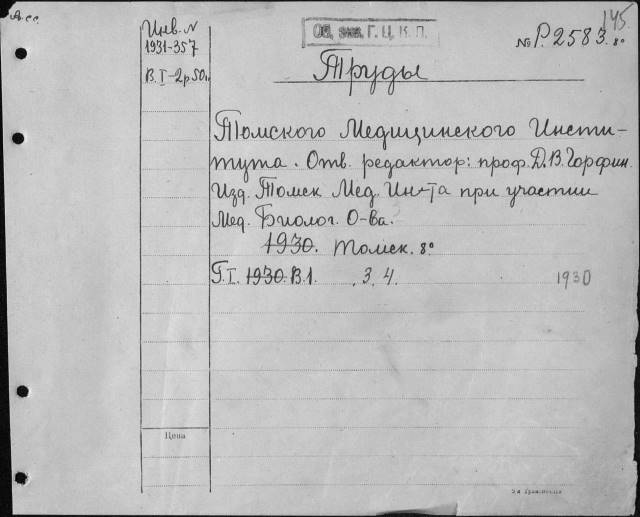 Асс.
145.
Об. экз. Г. Ц. К. П.
Инв. N
1931-357
№ Р.2583. 8°
В. I - 2р50к
Труды
Томского Медицинского Инсти-
тута. Отв. редактор: проф. Д.В. Горфин.
Изд. Томск. Мед. Ин-та при участии
Мед. Биолог. О-ва.
1930. Томск. 8°
Т. I. 1930. В.1. , 3, 4. 1930
Цена